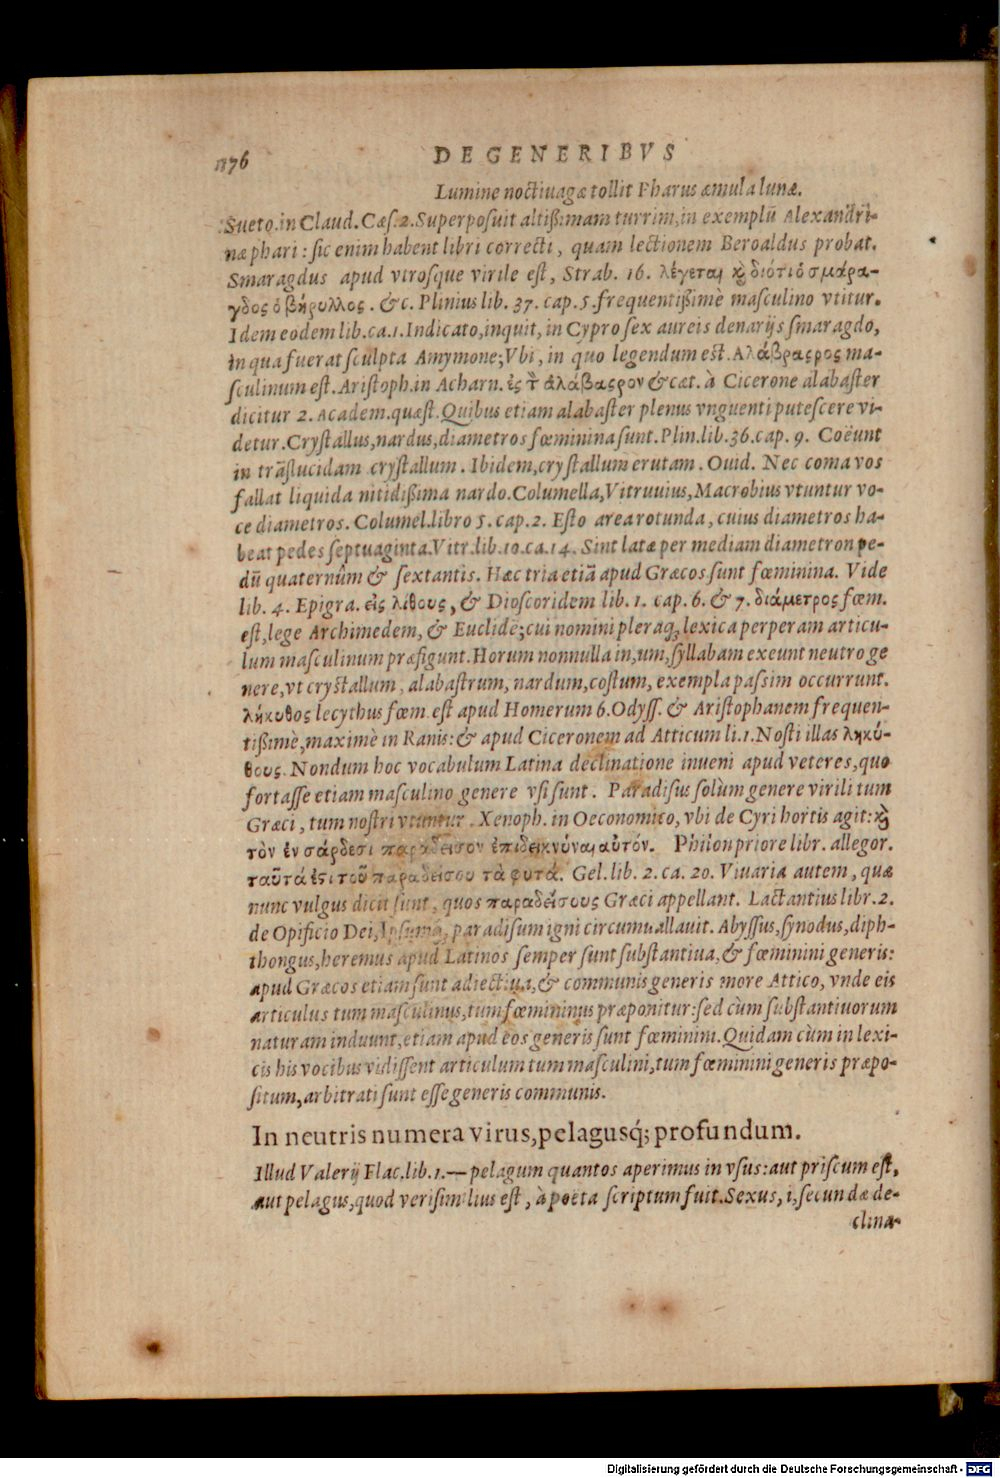 176 DE GENERIBVS
Lumine noctiuagæ tollit Pharus æmula lunæ.
Sueto. in Claud. Cæs. 2. Superposuit altißimam turrim, in exemplū Alexandri-
næ phari : sic enim habent libri correcti, quam lectionem Beroaldus probat.
Smaragdus apud vtrosque virile est, Strab. 16. λέγεται καὶ διότι ὁ σμάρα-
γδος ὁ βήρυλλος. &c. Plinius lib. 37. cap. 5. frequentißimè masculino vtitur.
Idem eodem lib. ca. 1. Indicato, inquit, in Cypro sex aureis denarijs smaragdo,
in qua fuerat sculpta Amymone; Vbi, in quo legendum est. Αλάβραςρος ma-
sculinum est. Aristoph. in Acharn. ἐς τ̀ ἀλάβαςρον & cæt. à Cicerone alabaster
dicitur 2. Academ. quæst. Quibus etiam alabaster plenus vnguenti putescere vi-
detur. Crystallus, nardus, diametros fœminina sunt. Plin. lib. 36. cap. 9. Coëunt
in trāslucidam crystallum. Ibidem, crystallum erutam. Ouid. Nec coma vos
fallat liquida nitidißima nardo. Columella, Vitruuius, Macrobius vtuntur vo-
ce diametros. Columel. libro 5. cap. 2. Esto area rotunda, cuius diametros ha-
beat pedes septuaginta. Vitr. lib. 10. ca. 14. Sint latæ per mediam diametron pe-
dū quaternûm & sextantis. Hæc tria etiā apud Græcos sunt fœminina. Vide
lib. 4. Epigra. εἰς λίθους, & Dioscoridem lib. 1. cap. 6. & 7. διάμετρος fœm.
est, lege Archimedem, & Euclidē; cui nomini pleraq; lexica perperam articu-
lum masculinum præfigunt. Horum nonnulla in, um, syllabam exeunt neutro ge
nere, vt crystallum, alabastrum, nardum, costum, exempla passim occurrunt.
λήκυθος lecythus fœm. est apud Homerum 6. Odyss. & Aristophanem frequen-
tißimè, maximè in Ranis: & apud Ciceronem ad Atticum li. 1. Nosti illas ληκύ-
θους. Nondum hoc vocabulum Latina declinatione inueni apud veteres, quo
fortasse etiam masculino genere vsi sunt. Paradisus solùm genere virili tum
Græci, tum nostri vtuntur. Xenoph. in Oeconomico, vbi de Cyri hortis agit: καὶ
τὸν ἐν σάρδεσι παράδεισον ἐπιδεικνύναι αὐτόν. Philon priore libr. allegor.
ταῦτά ἐςι τοῦ παραδείσου τὰ φυτά. Gel. lib. 2. ca. 20. Viuaria autem, quæ
nunc vulgus dicit sunt, quos παραδείσους Græci appellant. Lactantius libr. 2.
de Opificio Dei, Ipsumq́; paradisum igni circumuallauit. Abyssus, synodus, diph-
thongus, heremus apud Latinos semper sunt substantiua, & fœminini generis:
apud Græcos etiam sunt adiectiua, & communis generis more Attico, vnde eis
articulus tum masculinus, tum fœmininus præponitur: sed cùm substantiuorum
naturam induunt, etiam apud eos generis sunt fœminini. Quidam cùm in lexi-
cis his vocibus vidissent articulum tum masculini, tum fœminini generis præpo-
situm, arbitrati sunt esse generis communis.
In neutris numera virus, pelagusq́; profundum.
Illud Valerij Flac. lib. 1. — pelagum quantos aperimus in vsus: aut priscum est,
aut pelagus, quod verisimilius est, à poëta scriptum fuit. Sexus, i, secundæ de-
clina-
Digitalisierung gefördert durch die Deutsche Forschungsgemeinschaft - DFG